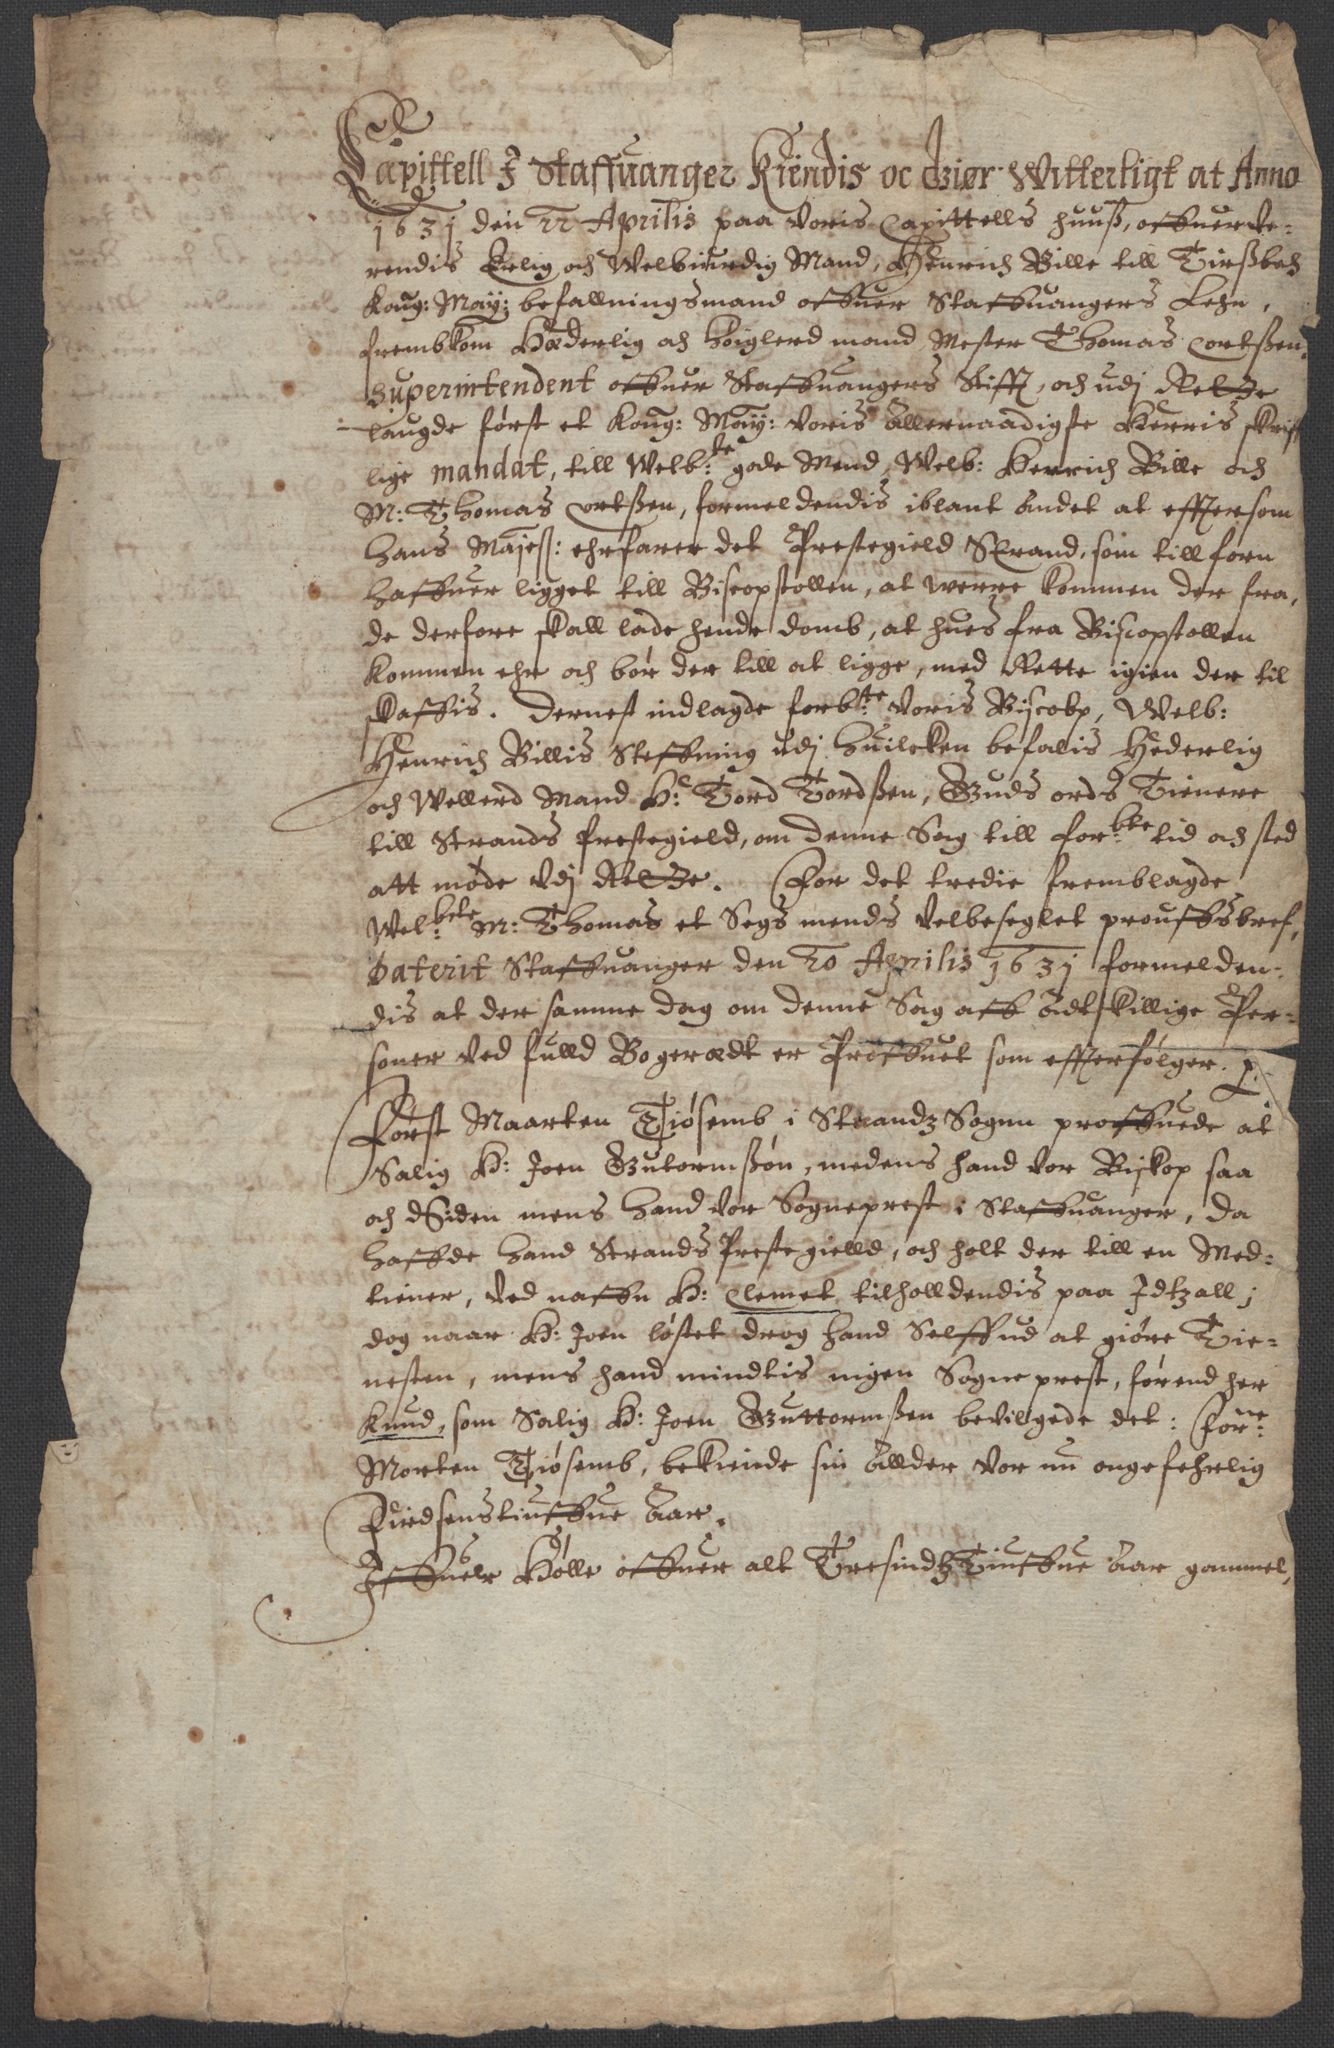 Capittell J Staffuanger Kiendis oc Giør Witterligt at Anno
1631 den 22 Aprilis paa voris Capittells huuß, offuerve¬
rendis Erlig och Welbiurdig Mand, Henrich Bille till Tirßbech
Kong: May: befallningsmand offuer Staffuangers Lehn,
frembkom Hæderlig och høiglerd mand Mester Thomas Cortßen,
Superintendent offuer Staffuangers Stifft, och udj Rette
laugde først et Kong: May: voris Allernaadigste Herris skrifft
lige mandat, till Welb:te gode Mend, Welb: Henrich Bille och
M: Thomas Cortßen, formeldendis iblant andet at effter som
hans Majest: ehrfarer det Prestegield Strand, som till forn
haffuer ligget till Biscopstollen, at werre kommen der fra,
de derfore skall lade hende domb, at hues fra Biscopstollen
kommen ehr och bør der till at ligge, med Rette igien der til
skaffis. Dernest indlagde forb:te voris Biscobp, Welb:
Henrich Billis Steffning udj huilcken befalis Hederlig
och Wellerd Mand H: Tord Tordßen, Guds ords Tienere
till Strands prestegield, om denne Sag till for:bte tid och sted
att møde vdj Rette. For det tredie fremblagde
Wel:bte M: Thomas et Sex mends velbeseglet prouffsbref,
Daterit Staffuanger den 20 Aprilis 1631 formelden¬
dis at der samme dag om denne Sag aff adtskillige Per¬
soner ved fulld Bogerædt er Prøffuet som effterfølger.
Først Maarten Tiøsemb i Strandz Sognn proffuede at
Salig H: Joen Gutormßøn, medens hand vor Biskop saa
och Siden mens hand vor Sogneprest i Staffuanger, da
haffde hand Strands Prestegielld, och holt der till en Med¬
tiener, ved naffn H: Clemet tilholldendis paa Jdtzall;
dog naar H: Joen løstet drog hand Selff ud at giøre Tie¬
nesten, mens hand mindtis ingen Sogneprest, førend her
Knud, som Salig H: Joen Guttormßen bevilgede det: For:ne
Morten Tiøsemb, bekiende sin Allder vor nu ongefehrlig
Firdsenstiuffue Aar.
Hølle offuer alt Tresindtztiuffue Aar gammel,